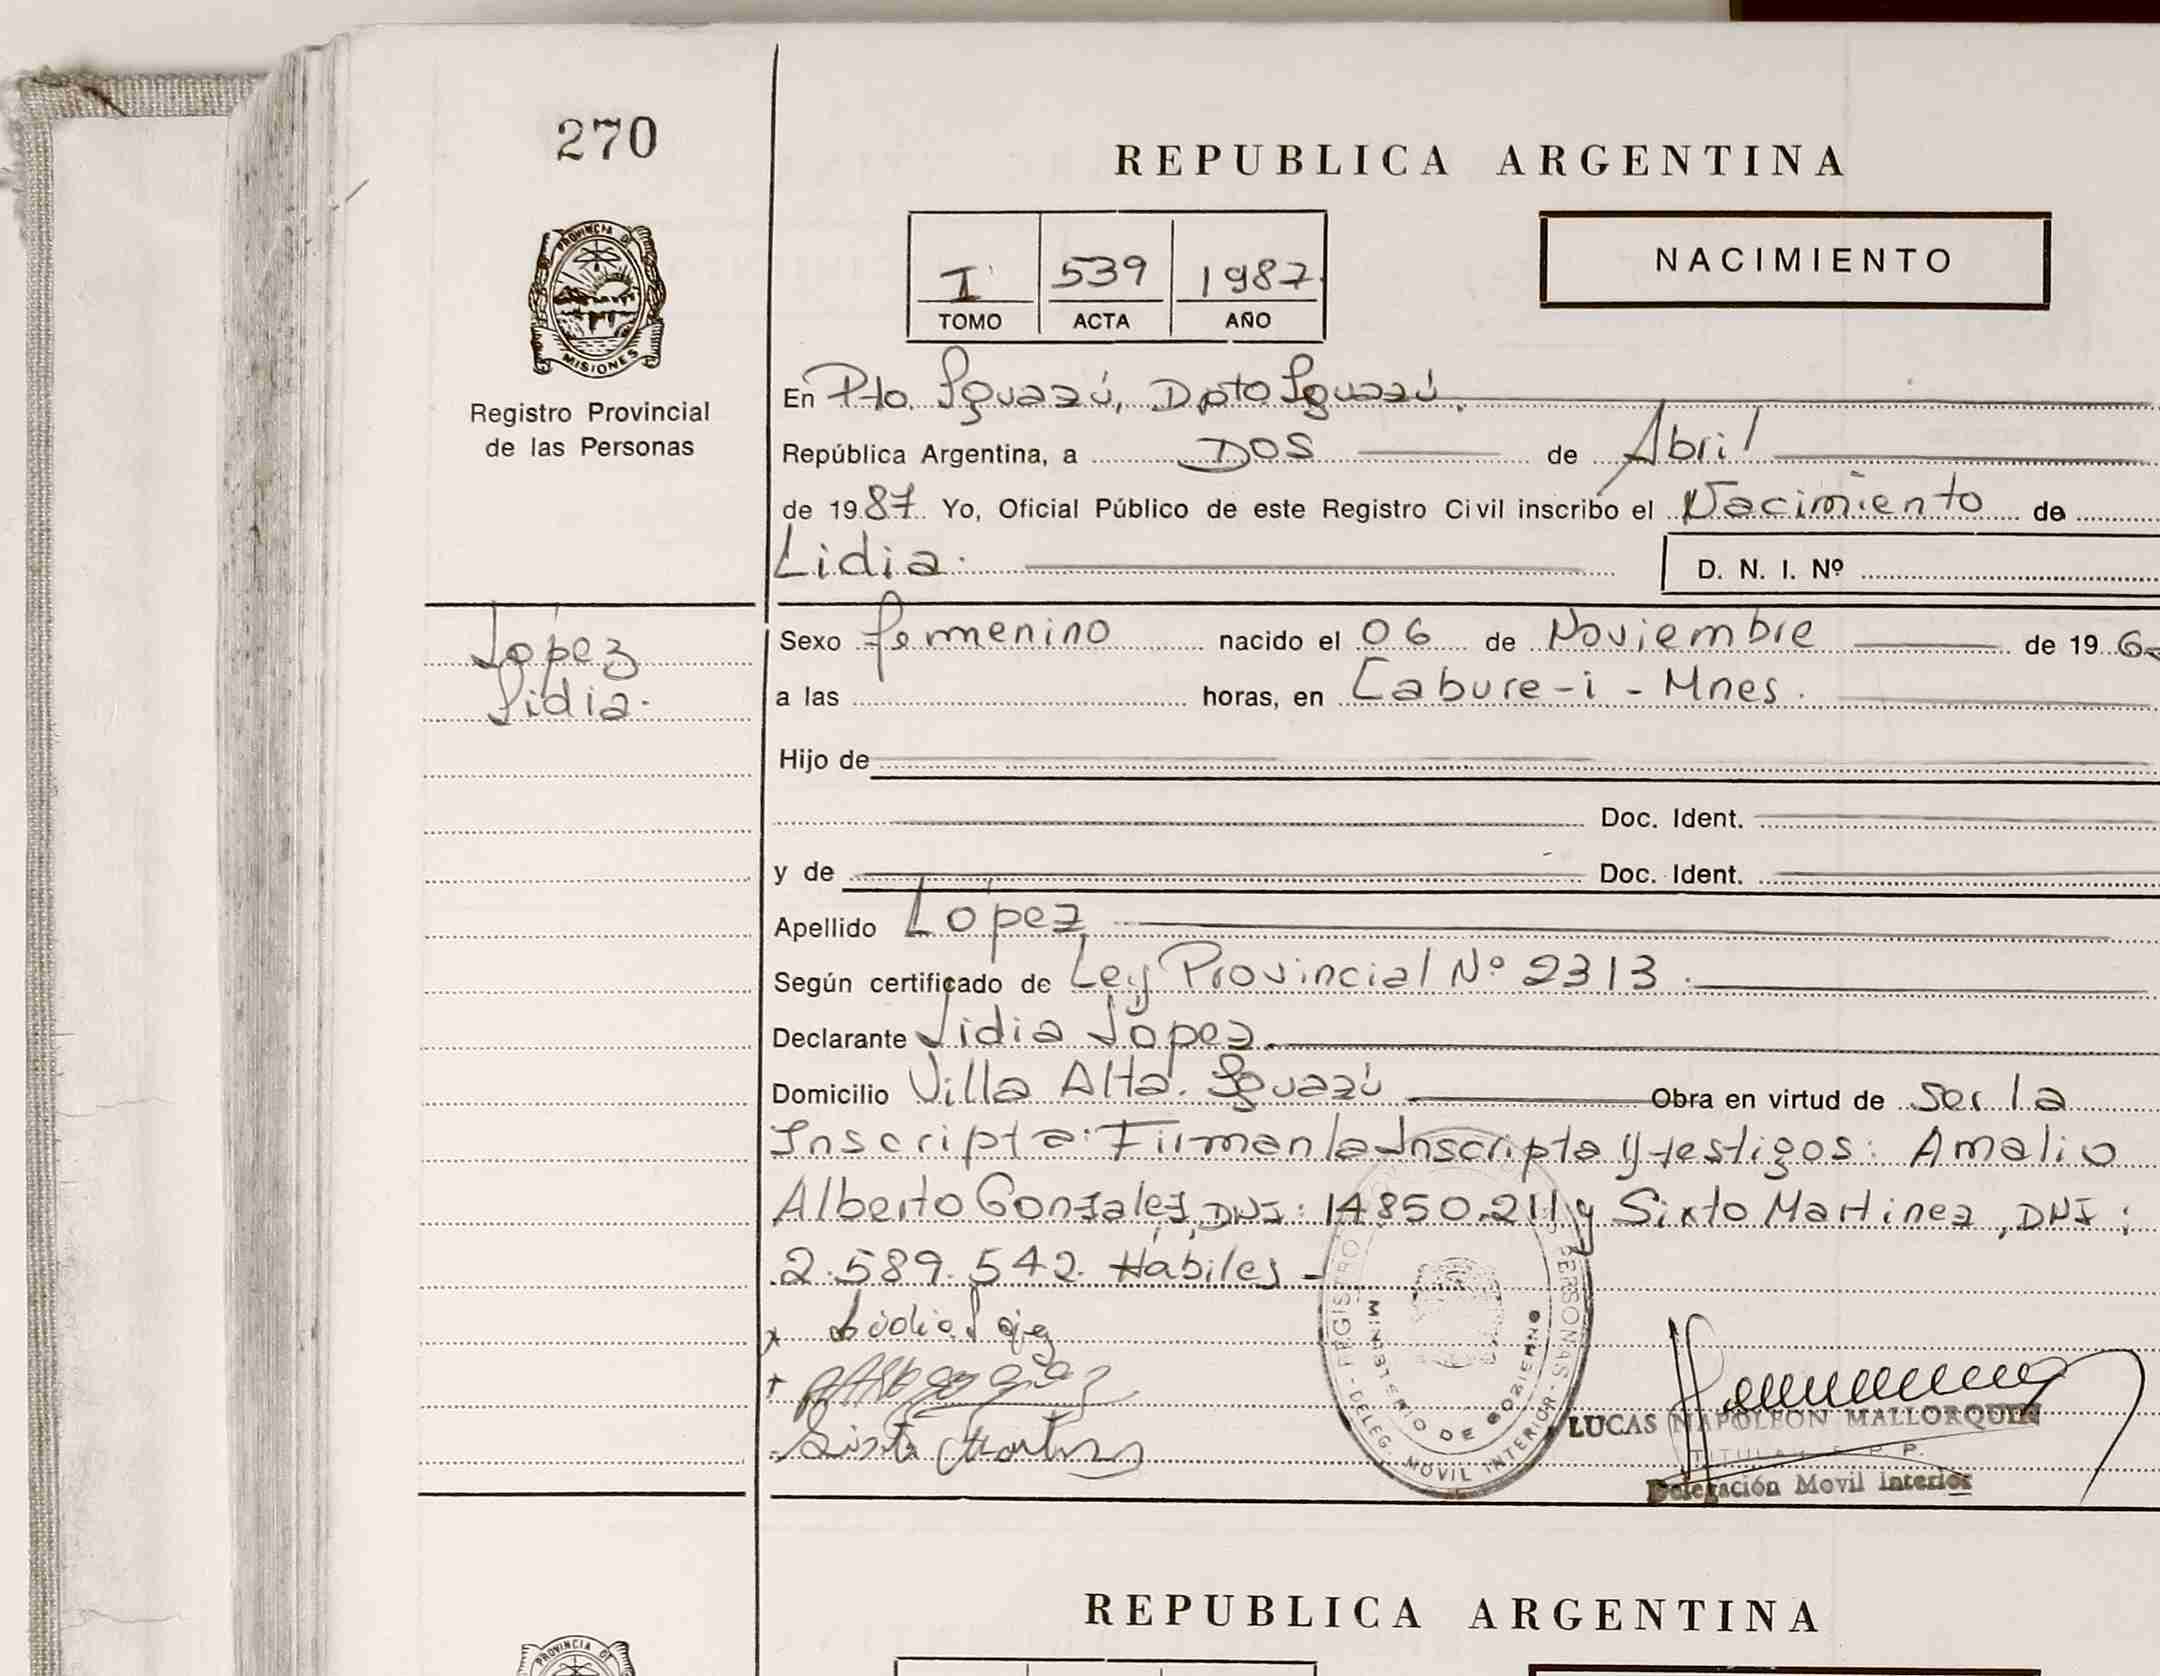 270
REPUBLICA ARGENTINA
PROVINCIA DE
MISIONES
Registro Provincial
de las Personas
I 539 1987
TOMO ACTA AÑO
NACIMIENTO
En Pto. Iguazú, Dpto Iguazú.
República Argentina, a DOS de Abril
de 1987 Yo, Oficial Público de este Registro Civil inscribo el Nacimiento de
Lidia.
D. N. I. Nº
López
Lidia.
Sexo femenino nacido el 06 de Noviembre de 19 6
a las horas, en Cabure-i - Mnes.
Hijo de
Doc. Ident.
y de Doc. Ident.
Apellido López
Según certificado de Ley Provincial Nº 2313.
Declarante Lidia López.
Domicilio Villa Alta. Iguazú Obra en virtud de ser la
Inscripta. Firman la Inscripta y testigos: Amalio
Alberto Gonzalez, DNI: 14.850.211 y Sixto Martinez, DNI:
2.589.542. Hábiles -
x Lidia Lopez
Sixto Martinez
REGISTRO PERSONAS - DELEG. MOVIL INTERIOR -
MINISTERIO DE GOBIERNO
LUCAS NAPOLEON MALLORQUIN
TITULAR R. P. P.
Delegación Movil Interior
REPUBLICA ARGENTINA
PROVINCIA DE